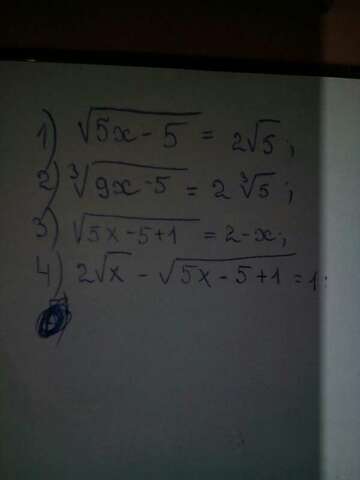 1) √(5x - 5) = 2√5;
2) ∛(9x - 5) = 2∛5;
3) √(5x - 5 + 1) = 2 - x;
4) 2√x - √(5x - 5 + 1) = 1.